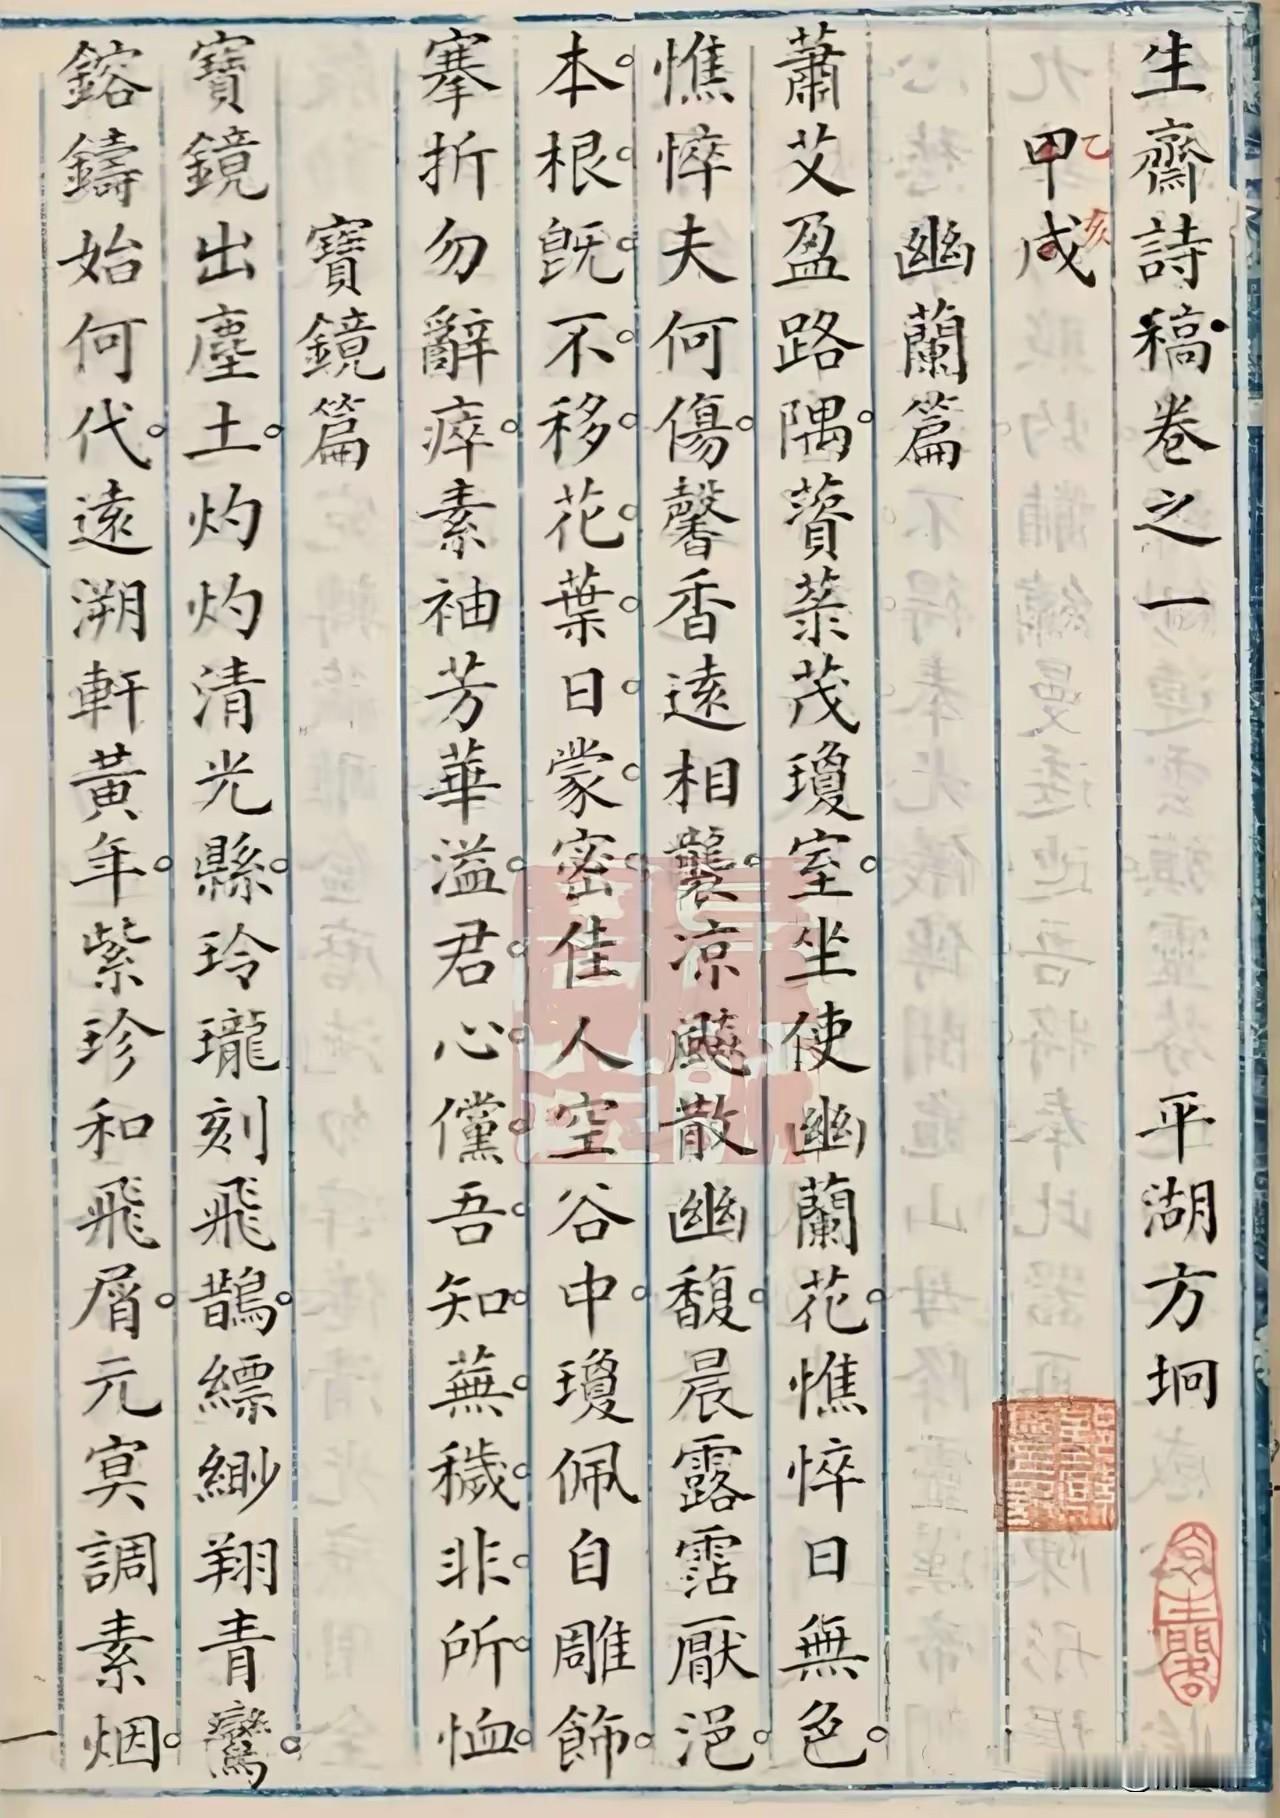 生齋詩稿卷之一 平湖方坰
甲戌
乙亥
幽蘭篇
蕭艾盈路隅薋菉茂瓊室坐使幽蘭花憔悴日無色
憔悴夫何傷馨香遠相襲凉飈散幽馥晨露霑厭浥
本根旣不移花葉日蒙密佳人空谷中瓊佩自雕飾
搴折勿辭瘁素袖芳華溢君心儻吾知蕪穢非所恤
寶鏡篇
寶鏡出塵土灼灼清光縣玲瓏刻飛鵲縹緲翔青鸞
鎔鑄始何代遠溯軒黃年紫珍和飛屑元㝠調素烟
一